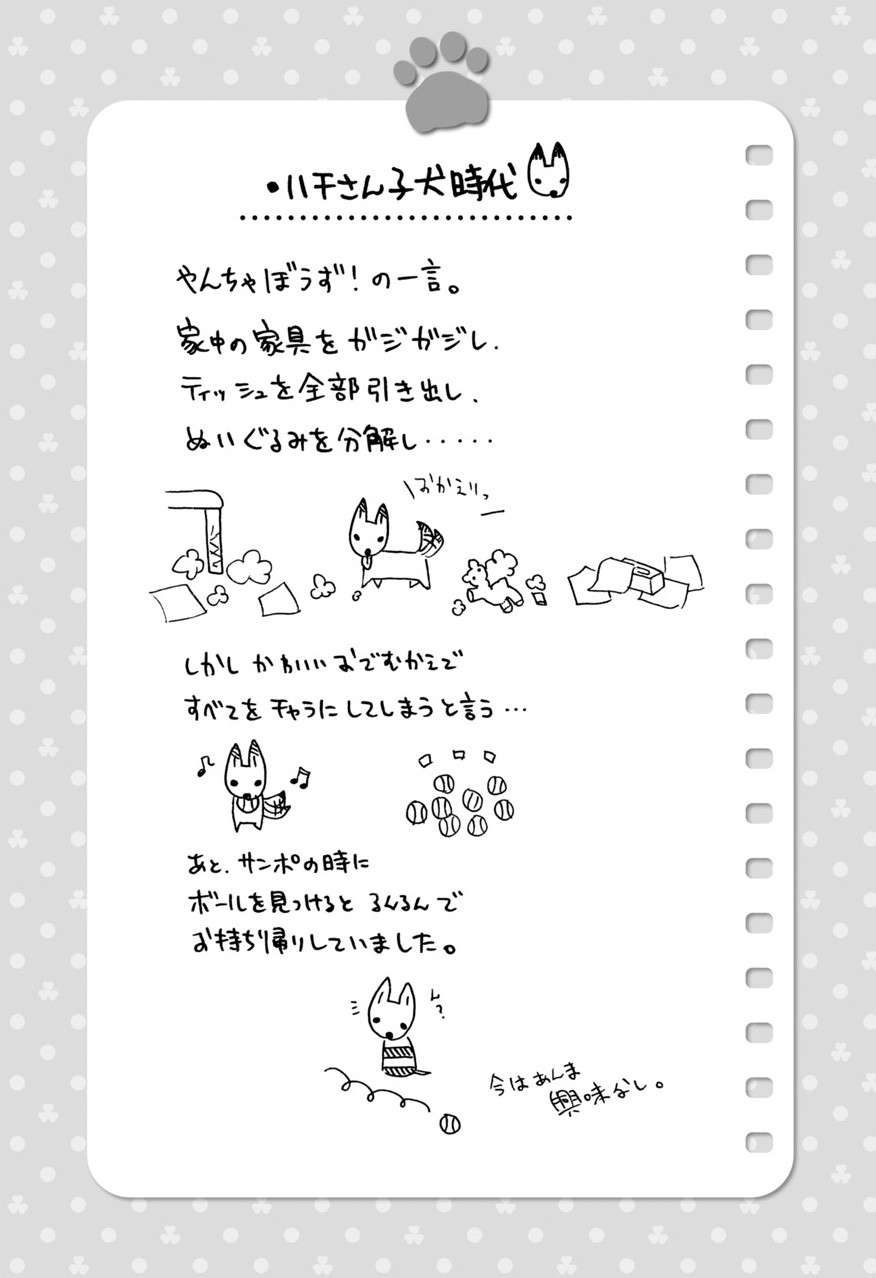 ・ハチさん子犬時代
やんちゃぼうず！の一言。
家中の家具をガジガジし、
ティッシュを全部引き出し、
ぬいぐるみを分解し・・・・・
おかえりっ
しかし かわいいおでむかえで
すべてを チャラにしてしまうと言う…
あと、サンポの時に
ボールを見つけると るんるんで
お持ち帰りしていました。
ん?
今はあんま
興味なし。